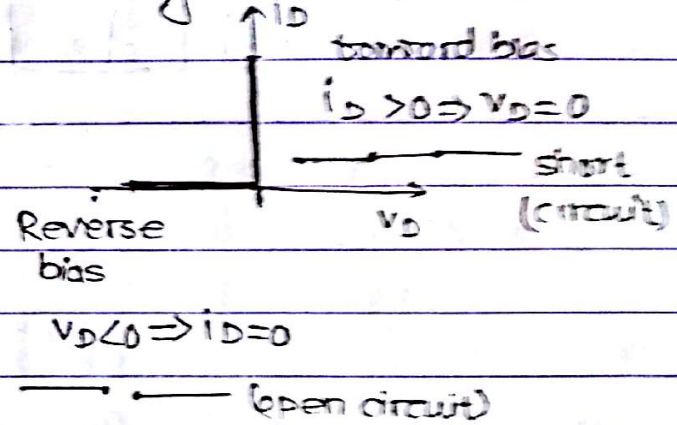 iD
forward bias
iD >0 ⇒ vD=0
short
(circuit)
vD
Reverse
bias
vD<0 ⇒ iD=0
(open circuit)